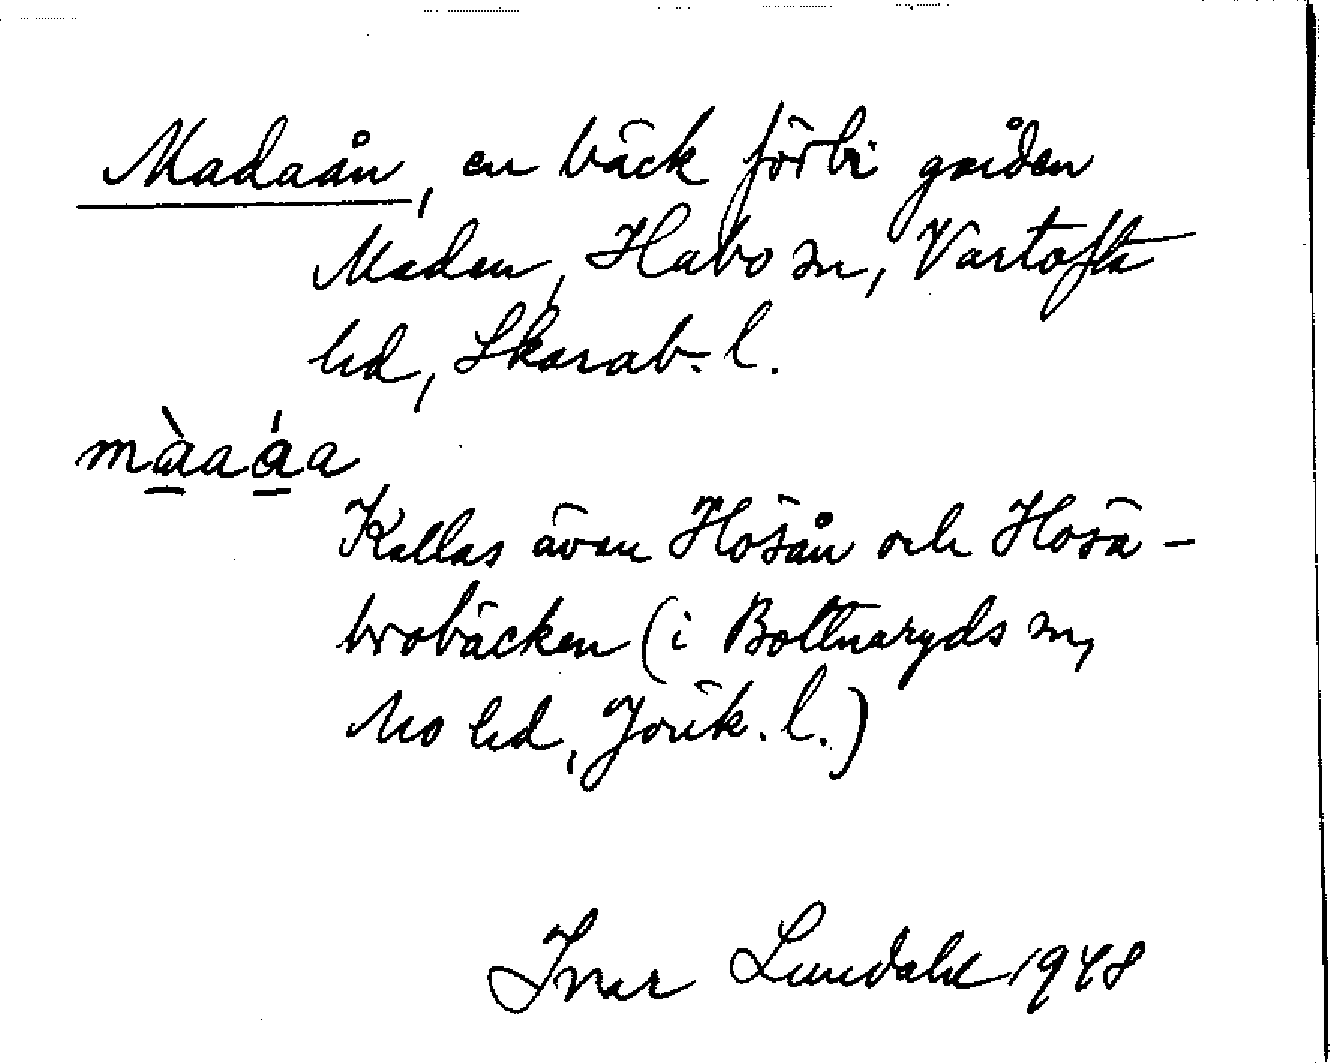 Madaån, en bäck förbi gården
Maden, Habo sn, Vartofta
hd, Skarab. l.
màaáa
Kallas även Hösån och Hösa-
brobäcken (i Bottnaryds sn,
Mo hd, Jönk. l.)
Ivar Lundahl 1948